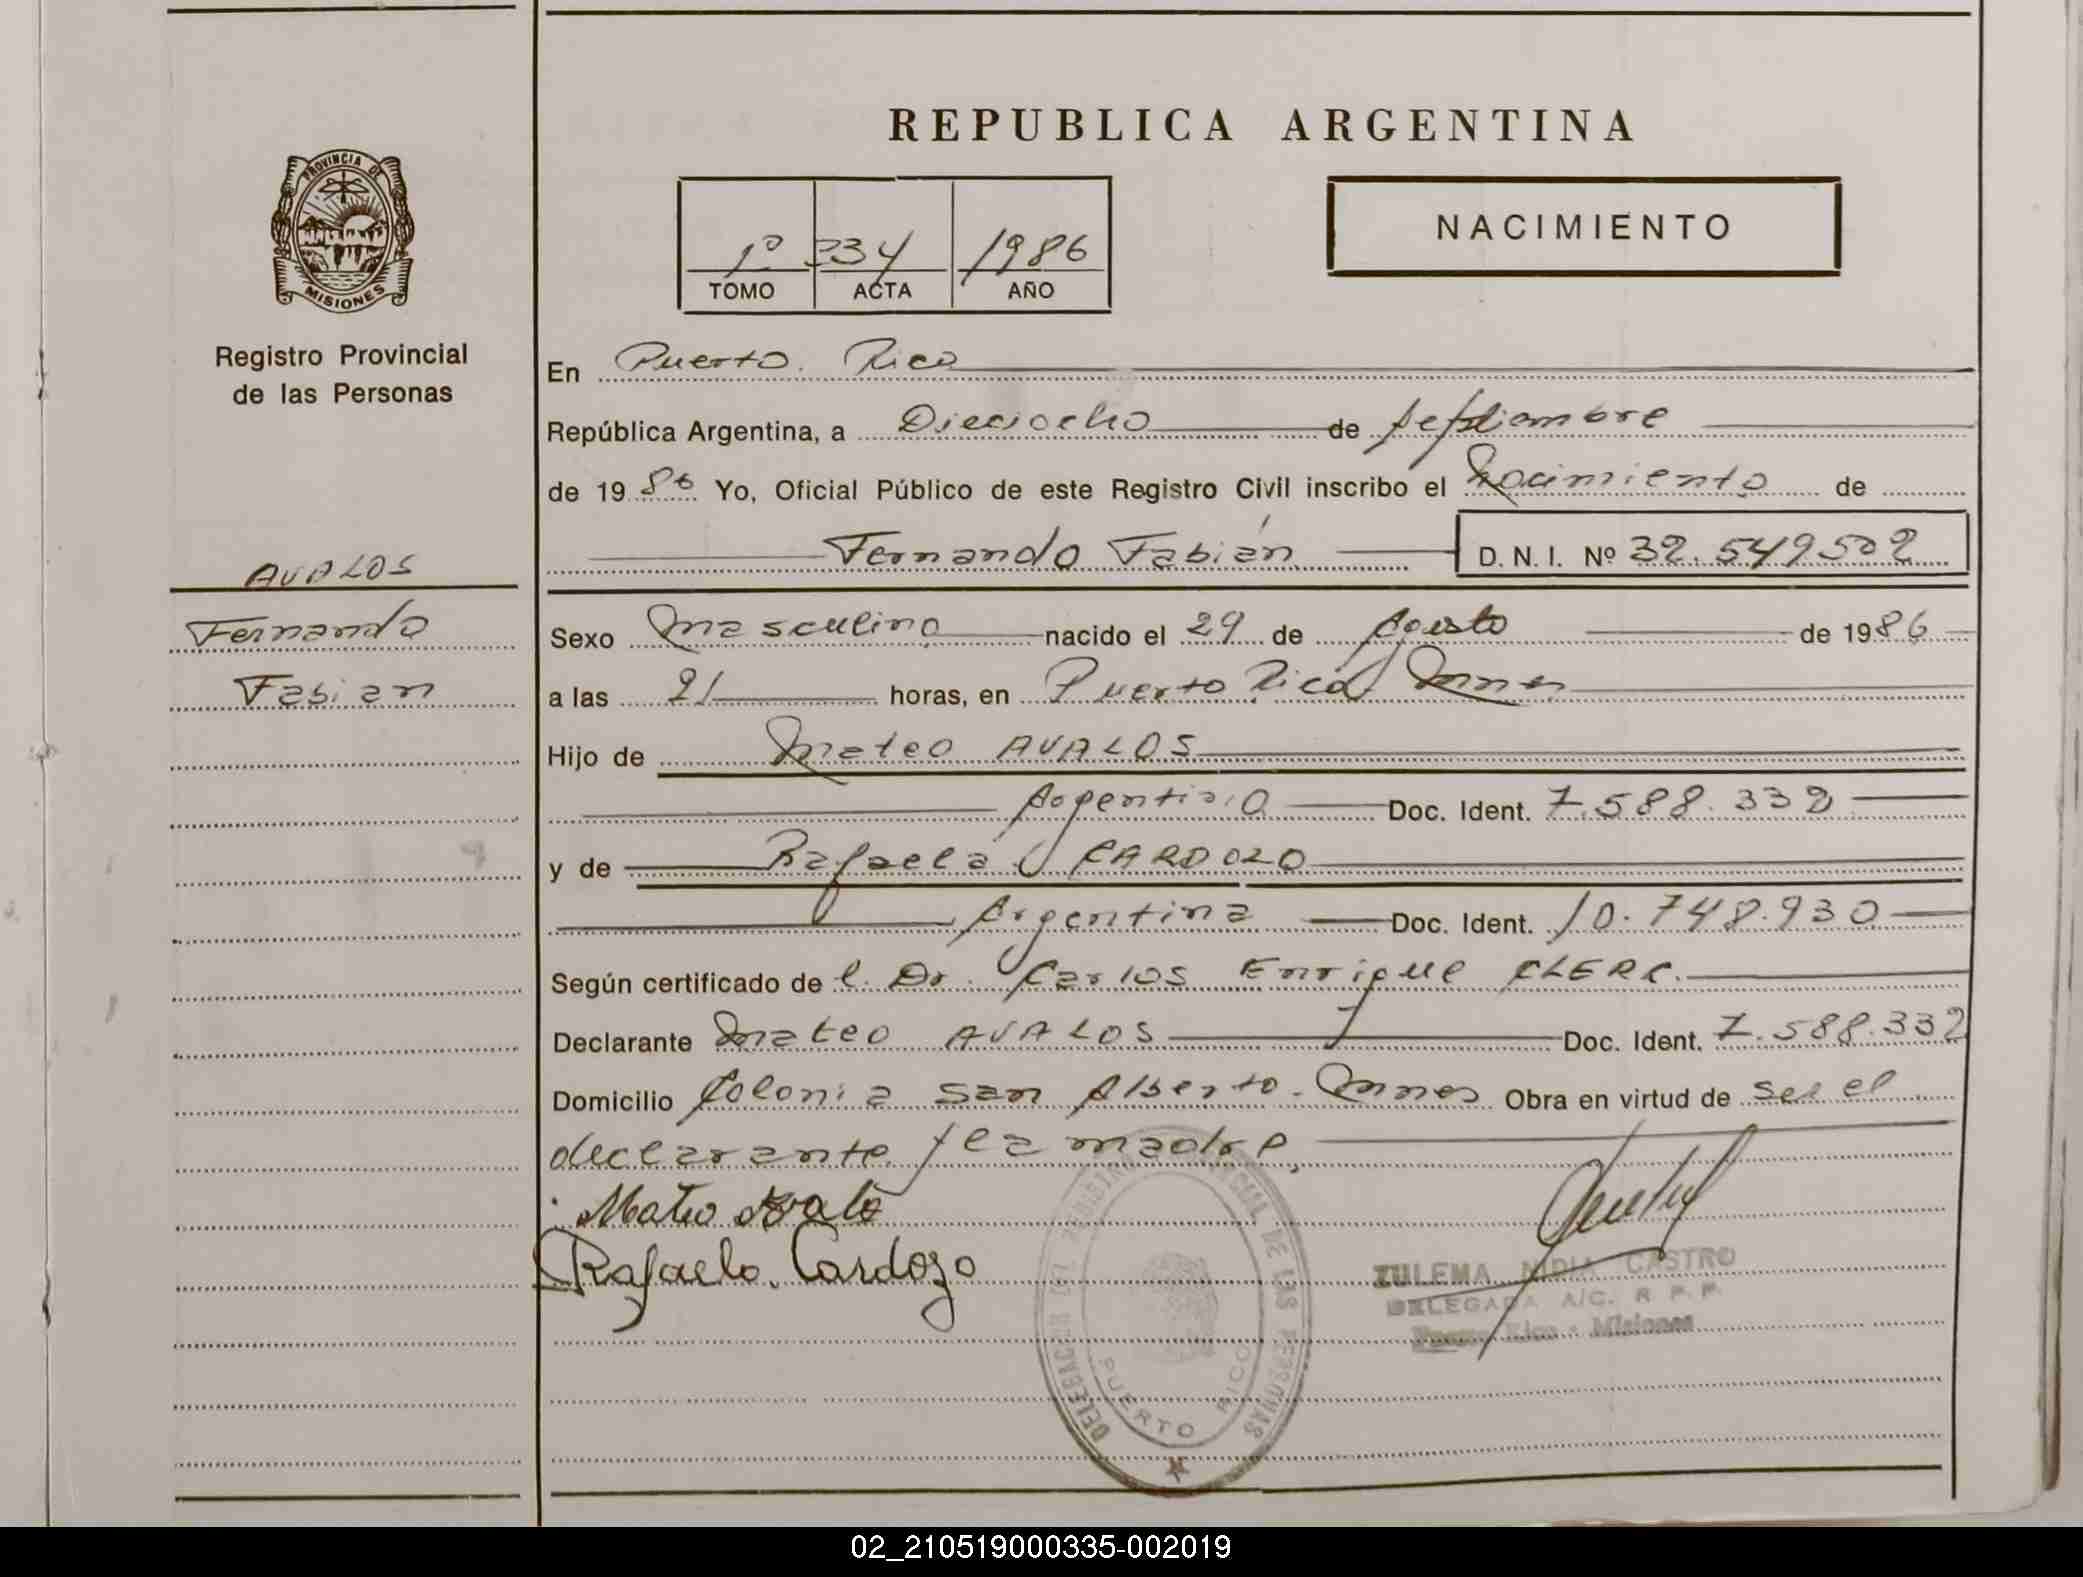 REPUBLICA ARGENTINA
PROVINCIA DE
MISIONES
Registro Provincial
de las Personas
1º 234 1986
TOMO ACTA AÑO
NACIMIENTO
En Puerto Rico
República Argentina, a Dieciocho de septiembre
de 1986 Yo, Oficial Público de este Registro Civil inscribo el Nacimiento de
Fernando Fabián D. N. I. Nº 32.549502
AVALOS
Fernando
Fabian
Sexo Masculino nacido el 29 de Agosto de 1986
a las 21 horas, en Puerto Rico Mnes
Hijo de Mateo AVALOS
Argentino Doc. Ident. 7.588.332
y de Rafaela CARDOZO
Argentina Doc. Ident. 10.748.930
Según certificado del Dr. Carlos Enrique CLERC.
Declarante Mateo AVALOS Doc. Ident. 7.588.332
Domicilio Colonia San Alberto - Mnes Obra en virtud de ser el
declarante y la madre,
Mateo Avalo
Rafaela Cardozo
ZULEMA NIDIA CASTRO
DELEGADA A/C. R P. P.
Puerto Rico - Misiones
DELEGACION DEL REGISTRO PROVINCIAL DE LAS PERSONAS
PUERTO RICO
02_210519000335-002019